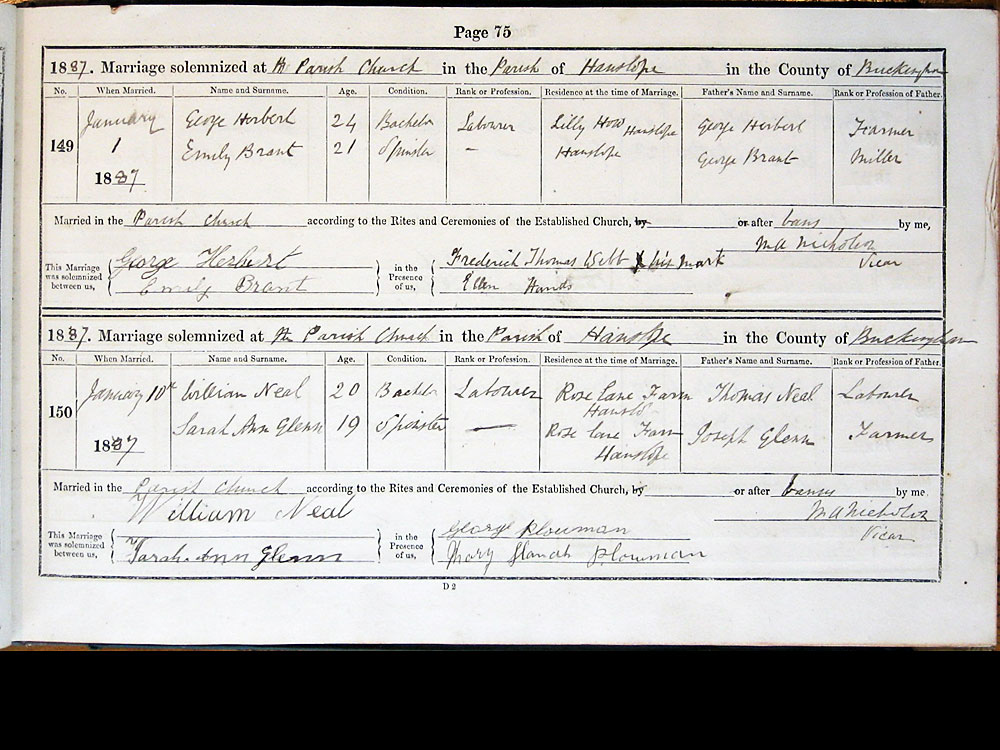 Page 75
1887. Marriage solemnized at the Parish Church in the Parish of Hanslope in the County of Buckingham
No. When Married. Name and Surname. Age. Condition. Rank or Profession. Residence at the time of Marriage. Father's Name and Surname. Rank or Profession of Father.
149 January 1 1887 George Herbert 24 Bachelor Labourer Hanslope George Herbert Farmer
Emily Brant 21 Spinster — Hanslope George Brant Miller
Married in the Parish Church according to the Rites and Ceremonies of the Established Church, by or after bans by me,
M A Nicholson
Vicar
This Marriage was solemnized between us, George Herbert Emily Brant in the Presence of us, Frederick Thomas Webb X his mark Ellen Hands
1887. Marriage solemnized at the Parish Church in the Parish of Hanslope in the County of Buckingham
No. When Married. Name and Surname. Age. Condition. Rank or Profession. Residence at the time of Marriage. Father's Name and Surname. Rank or Profession of Father.
150 January 10th 1887 William Neal 20 Bachelor Labourer Rose Lane Farm Hanslo Thomas Neal Labourer
Sarah Ann Glenn 19 Spinster — Rose Lane Farm Hanslope Joseph Glenn Farmer
Married in the Parish Church according to the Rites and Ceremonies of the Established Church, by or after banns by me.
M A Nicholson
Vicar
This Marriage was solemnized between us, William Neal Sarah Ann Glenn in the Presence of us, George Plowman Mary Hanah Plowman
D 2